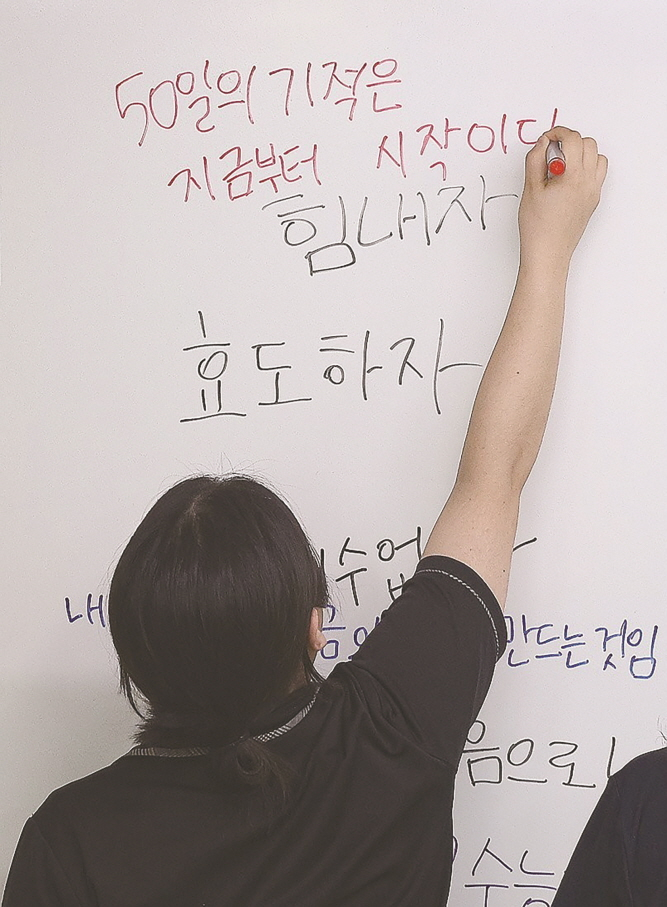 50일의 기적은
지금부터 시작이다
힘내자
효도하자
수업
내 만드는 것임
음으로
수능